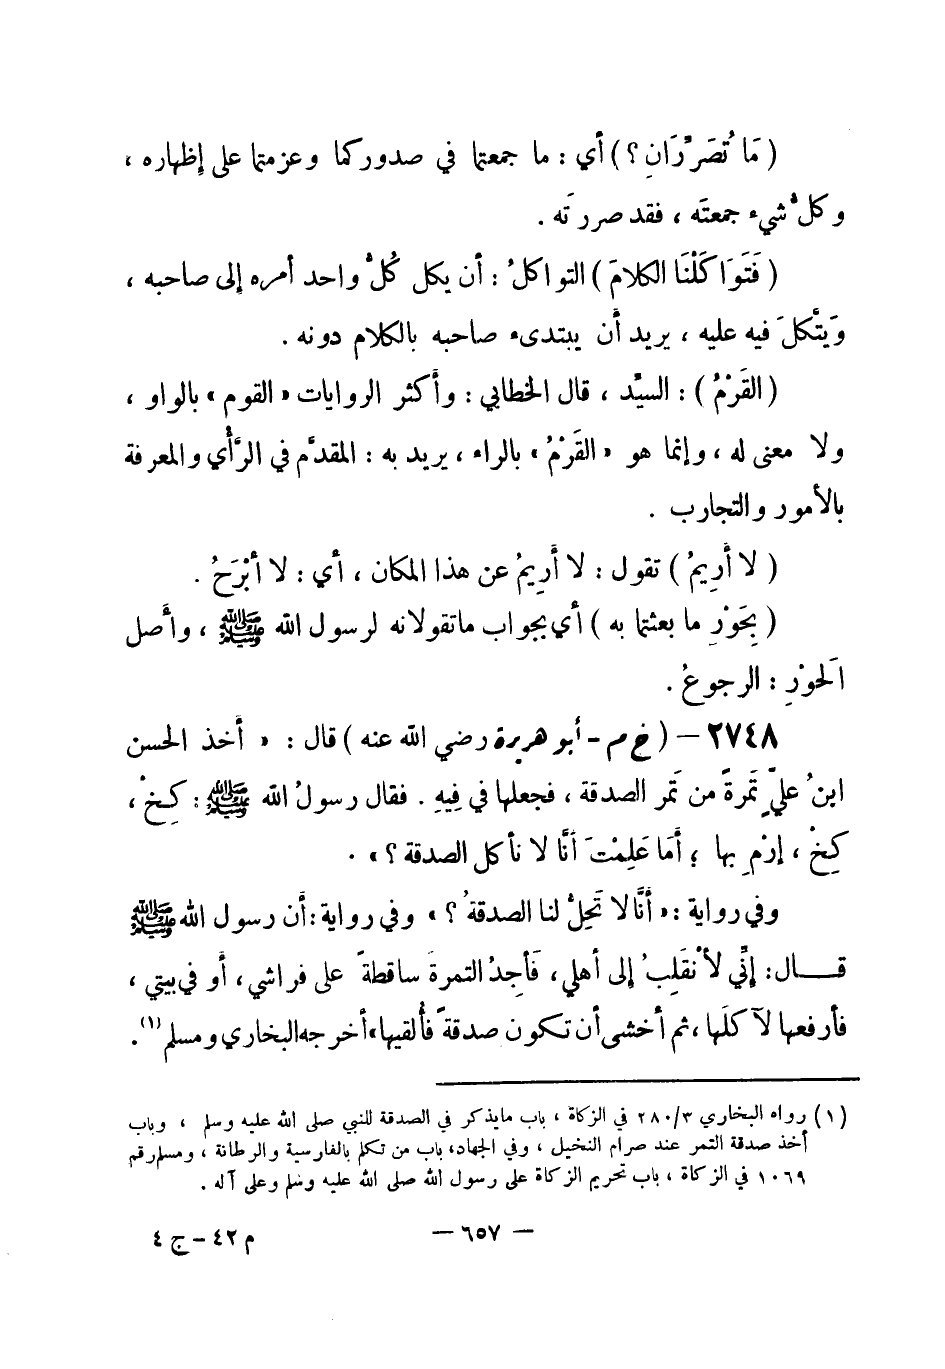 ( مَا تُصَرِّرَانِ ؟ ) أي : ما جمعتما في صدوركما وعزمتما على إظهاره ،
وكلُّ شيء جمعتَه ، فقد صررتَه .
( فَتَوَاكَلْنَا الكلامَ ) التواكلُ : أن يكل كُلُّ واحد أمره إلى صاحبه ،
وَيَتَّكلَ فيه عليه ، يريد أن يبتدىء صاحبه بالكلام دونه .
( القَرْمُ ) : السيِّد ، قال الخطابي : وأكثر الروايات « القوم » بالواو ،
ولا معنى له ، وإنما هو « القَرْمُ » بالراء ، يريد به : المقدَّم في الرَّأي والمعرفة
بالأمور والتجارب .
( لا أَرِيمُ ) تقول : لا أَرِيمُ عن هذا المكان ، أي : لا أبْرَحُ .
( بِحَوْرِ ما بعثتما به ) أي بجواب ماتقولانه لرسول الله ﷺ ، وأصل
الَحوْرِ : الرجوعُ .
٢٧٤٨ – ( خ م - أبو هريرة رضي الله عنه ) قال : « أخذ الحسن
ابنُ عليٍّ تَمرةً من تَمر الصدقة ، فجعلها في فِيهِ . فقال رسولُ الله ﷺ : كِخْ ،
كِخْ ، إرْمِ بها ؛ أَمَا عَلِمْتَ أنَّا لا نأكل الصدقة ؟ » .
وفي رواية : « أنَّا لا تَحِلُّ لنا الصدقةُ ؟ » وفي رواية : أن رسول الله ﷺ
قـــال : إنِّي لأنْقَلِبُ إلى أهلي ، فَأجِدُ التمرةَ ساقطةً على فراشي ، أو في بيتي ،
فأرفعها لآكلَها ، ثم أخشى أن تكون صدقةً فأُلقيها » أخرجه البخاري ومسلم (١) .
(١) رواه البخاري ٢٨٠/٣ في الزكاة ، باب مايذكر في الصدقة للنبي صلى الله عليه وسلم ، وباب
أخذ صدقة التمر عند صرام النخيل ، وفي الجهاد، باب من تكلم بالفارسية والرطانة ، ومسلم رقم
١٠٦٩ في الزكاة ، باب تحريم الزكاة على رسول الله صلى الله عليه وسلم وعلى آله .
– ٦٥٧ –
م ٤٢ – ج ٤